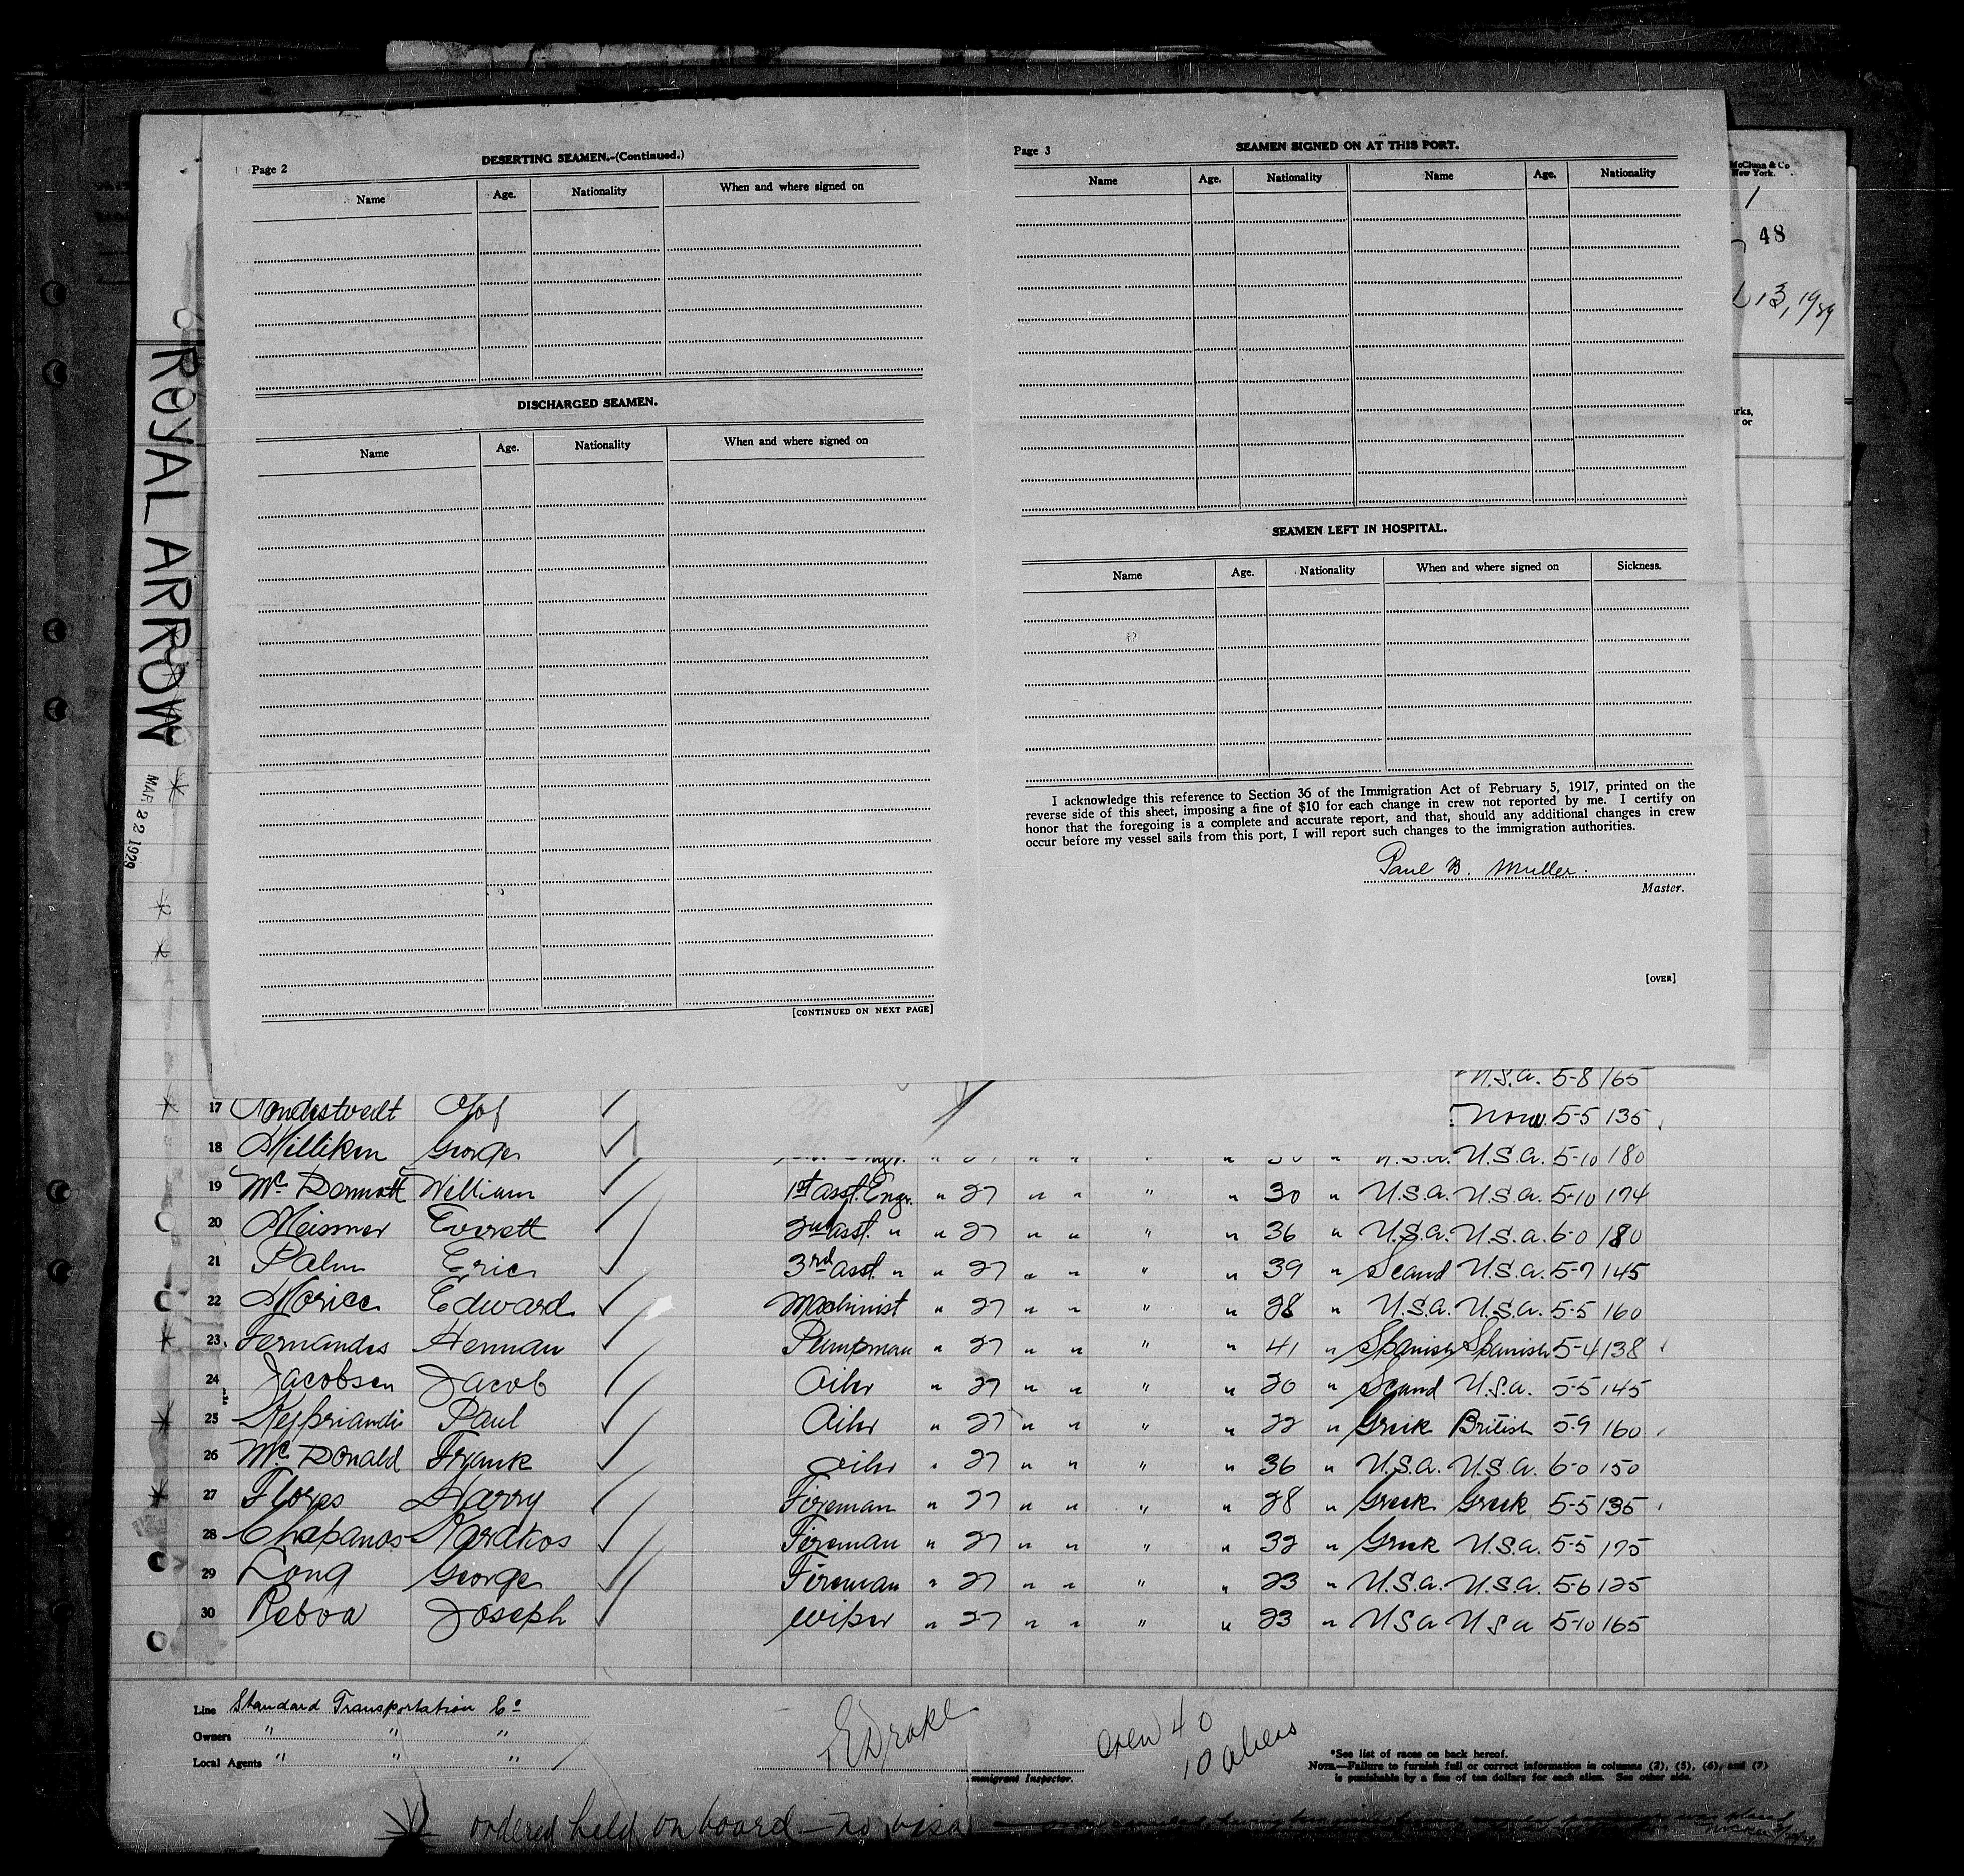 Page 2
DESERTING SEAMEN.-(Continued.)
Name Age. Nationality When and where signed on
DISCHARGED SEAMEN.
Name Age. Nationality When and where signed on
[CONTINUED ON NEXT PAGE]
Page 3
SEAMEN SIGNED ON AT THIS PORT.
Name Age. Nationality Name Age. Nationality
SEAMEN LEFT IN HOSPITAL.
Name Age. Nationality When and where signed on Sickness.
I acknowledge this reference to Section 36 of the Immigration Act of February 5, 1917, printed on the
reverse side of this sheet, imposing a fine of $10 for each change in crew not reported by me. I certify on
honor that the foregoing is a complete and accurate report, and that, should any additional changes in crew
occur before my vessel sails from this port, I will report such changes to the immigration authorities.
Paul B. Muller.
Master.
[OVER]
McClunn & Co
New York.
1
48
13, 1929
or
ROYAL ARROW
MAR 22 1929
U.S.A. 5-8 165
17 Olof Norw. 5-5 135
18 Milliken George U.S.A. U.S.A. 5-10 180
19 Mc Dermott William 1st asst. Engr. " 27 " " " " 30 " U.S.A. U.S.A. 5-10 174
20 Meisner Everett 2nd asst. " " 27 " " " " 36 " U.S.A. U.S.A. 6-0 180
21 Palm Eric 3rd asst. " " 27 " " " " 39 " Scand U.S.A. 5-7 145
22 Morice Edward Machinist " 27 " " " " 28 " U.S.A. U.S.A. 5-5 160
23 Fernandes Herman Pumpman " 27 " " " " 41 " Spanish Spanish 5-4 138
24 Jacobsen Jacob Oiler " 27 " " " " 20 " Scand U.S.A. 5-5 145
25 Kypriandi Paul Oiler " 27 " " " " 22 " Greek British 5-9 160
26 Mc Donald Frank Oiler " 27 " " " " 36 " U.S.A. U.S.A. 6-0 150
27 Flores Harry Fireman " 27 " " " " 28 " Greek Greek 5-5 135
28 Chepanos Karakos Fireman " 27 " " " " 32 " Greek U.S.A. 5-5 175
29 Long George Fireman " 27 " " " " 23 " U.S.A. U.S.A. 5-6 125
30 Reboa Joseph Wiper " 27 " " " " 23 " USA USA 5-10 165
Line Standard Transportation Co
Owners " " "
Local Agents " " "
Drake
Immigrant Inspector.
Crew 40
10 aliens
*See list of races on back hereof.
NOTE.—Failure to furnish full or correct information in columns (2), (5), (6), and (7)
is punishable by a fine of ten dollars for each alien. See other side.
ordered held on board — no visa